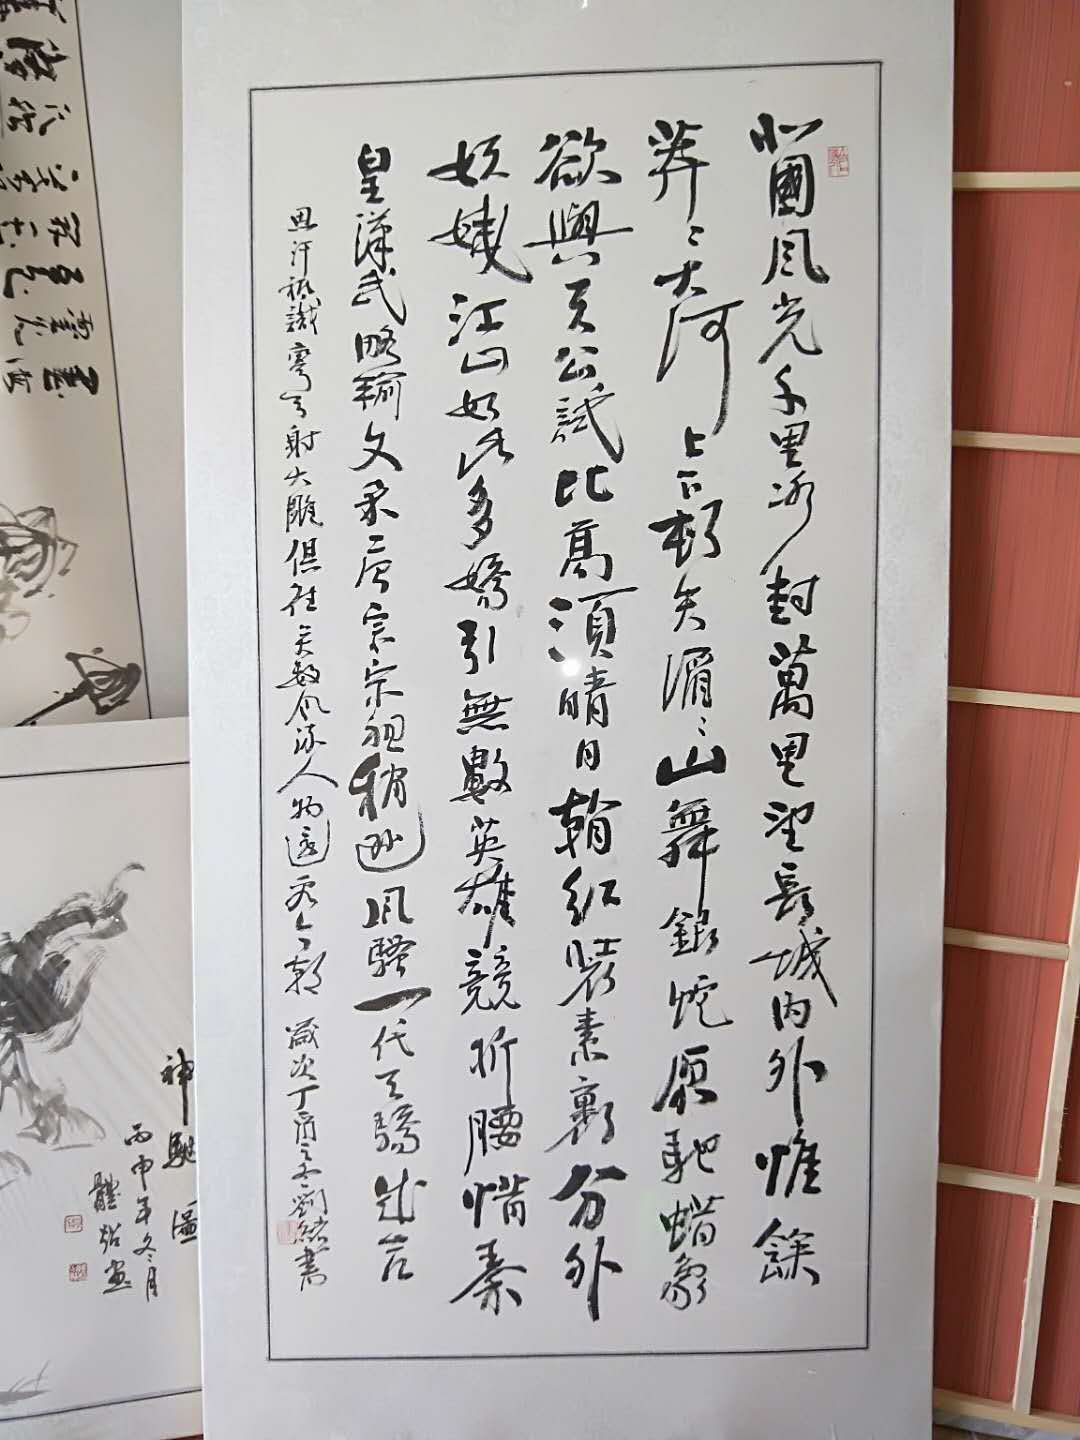 北國風光千里冰封萬里望長城内外惟餘
莽〻大河上下頓失滔〻山舞銀蛇原馳蜡象
欲與天公試比高須晴日翰紅裝素裹分外
妖嬈江山如此多嬌引無數英雄競折腰惜秦
皇漢武略輸文采唐宋宗祖稍遜風騷一代天驕成吉
思汗祇識彎弓射大雕俱往矣數風流人物還看今朝 歲次丁酉之冬劉緒書
神馳
丙申年冬月